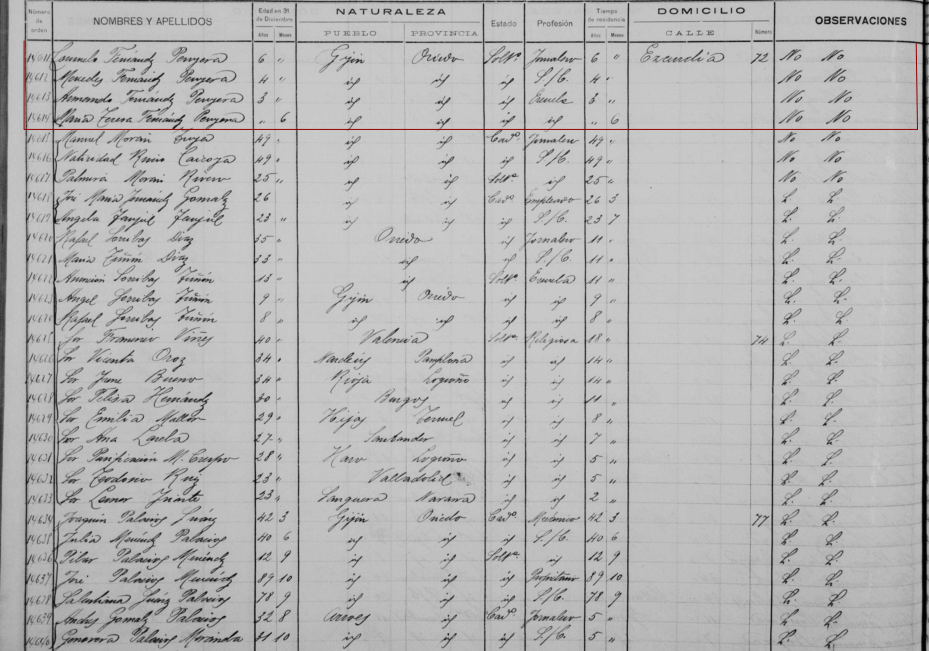 Número de orden NOMBRES Y APELLIDOS Edad en 31 de Diciembre Años Meses NATURALEZA PUEBLO PROVINCIA Estado Profesión Tiempo de residencia Años Meses DOMICILIO CALLE Número OBSERVACIONES
14611 Fernández 6 " Gijón Oviedo Solt.º Jornalero 6 " Ezcurdia 72 No No
14612 Mercedes Fernández 4 " id id id S/C. 4 " No No
14613 Armando Fernández 3 " id id id Escuela 3 " No No
14614 María Teresa Fernández " 6 id id id id " 6 No No
14615 Manuel Morán 49 " id id Cad.º Jornalero 49 " No No
14616 Natividad 49 " id id id S/C. 49 " No No
14617 Palmira Morán Rivero 25 " id id Solt.ª id 25 " No No
14618 José María Fernández González 26 id id Cad.º Empleado 26 3 L. L.
14619 Angela Fanjul Fanjul 23 " id id id S/C. 23 7 L. L.
14620 Rafael Sorribas Diaz 35 " Oviedo id Jornalero 11 " L. L.
14621 María Diaz 33 " id id S/C. 11 " L. L.
14622 Asunción Sorribas 13 " id Solt.ª Escuela 11 " L. L.
14623 Angel Sorribas 9 " Gijón Oviedo id id 9 " L. L.
14624 Rafael Sorribas 8 " id id id id 8 " L. L.
14625 Sor Viñes 40 " Valencia Solt.ª Religiosa 18 " 74 L. L.
14626 Sor Vicenta Oroz 34 " Pamplona id id 14 " L. L.
14627 Sor Irene Bueno 34 " Rioja Logroño id id 14 " L. L.
14628 Sor Felisa Hernández 30 " Burgos id id 11 " L. L.
14629 Sor Emilia 29 " Hijar Teruel id id 8 " L. L.
14630 Sor Ana 27 " Santander id id 7 " L. L.
14631 Sor Purificación M. Crespo 28 " Haro Logroño id id 5 " L. L.
14632 Sor Teodosia Ruiz 23 " Valladolid id id 5 " L. L.
14633 Sor Leonor Iriarte 23 " Navarra id id 2 " L. L.
14634 Joaquin Palacios Suárez 42 3 Gijón Oviedo Cad.º Mecánico 42 3 77 L. L.
14635 Julia Menéndez Palacios 40 6 id id id S/C. 40 6 L. L.
14636 Pilar Palacios Menéndez 12 9 id id Solt.ª id 12 9 L. L.
14637 José Palacios Menéndez 89 10 id id id Propietario 89 10 L. L.
14638 Suárez Palacios 78 9 id id id S/C. 78 9 L. L.
14639 Andrés González Palacios 32 8 id Cad.º Jornalero 5 " L. L.
14640 Genoveva Palacios 31 10 id id id S/C. 5 " L. L.